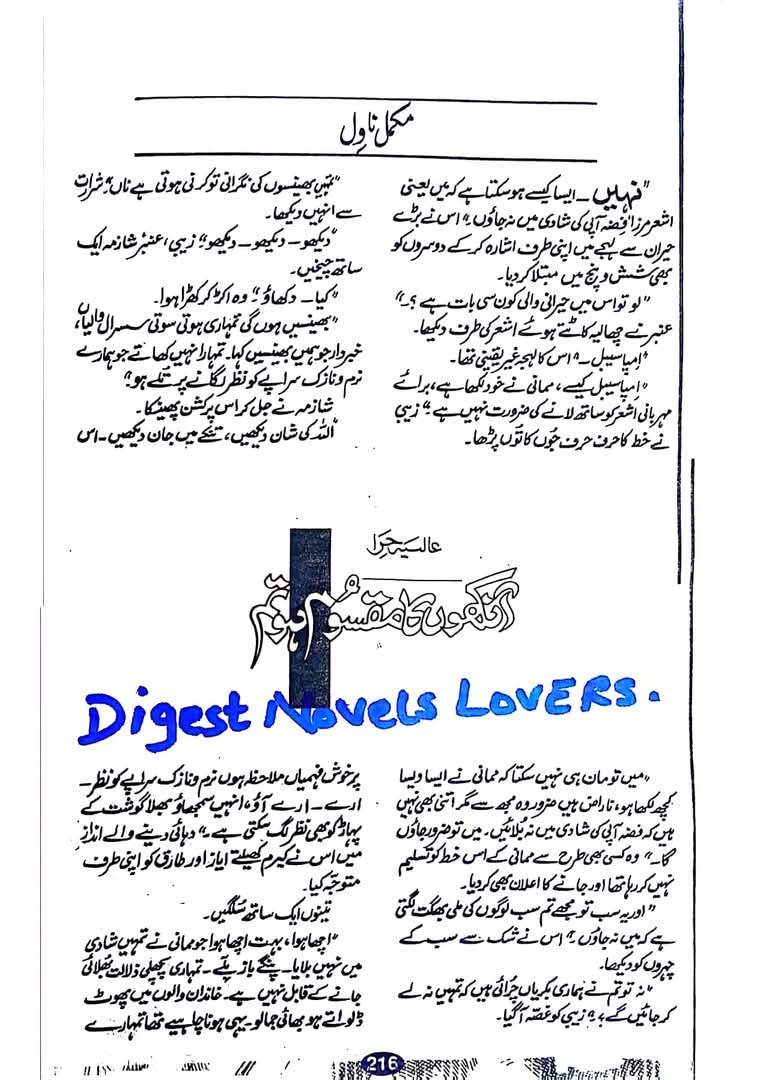 مکمل ناول
"نہیں۔ ایسا کیسے ہوسکتا ہے کہ میں یعنی
اشعر مرزا فضہ آپی کی شادی میں نہ جاؤں۔" اس نے بڑے
حیران سے لہجے میں اپنی طرف اشارہ کرکے دوسروں کو
بھی شش و پنج میں مبتلا کردیا۔
"لو تو اس میں حیرانی والی کون سی بات ہے ؟"
عنبر نے چھالیہ کاٹتے ہوئے اشعر کی طرف دیکھا۔
"امپاسیبل۔" اس کا لہجہ غیر یقینی تھا۔
"امپاسیبل کیسے، ممانی نے خود لکھا ہے، برائے
مہربانی اشعر کو ساتھ لانے کی ضرورت نہیں ہے۔" زیبی
نے خط کا حرف حرف جوں کا توں پڑھا۔
"تمہیں بھینسوں کی نگرانی تو کرنی ہوتی ہے ناں۔" شرارت
سے انہیں دیکھا۔
"دیکھو۔ دیکھو۔ دیکھو۔" زیبی، عنبر، شازمہ ایک
ساتھ چیخیں۔
"کیا۔ دکھاؤ۔" وہ اکڑ کر کھڑا ہوا۔
"بھینسیں ہوں گی تمہاری ہوتی سوتی سسرال والیاں،
خبردار جو ہمیں بھینسیں کہا۔ تمہارا نہیں کھاتے جو ہمارے
نرم و نازک سراپے کو نظر لگانے پر تلے ہو۔"
شازمہ نے جل کر اس پر کشن پھینکا۔
"اللہ کی شان دیکھیں، تنکے میں جان دیکھیں۔ اس
عالیہ حرا
آنکھوں کا مقسوم ہو تم
Digest Novels LOVERS.
"میں تو مان ہی نہیں سکتا کہ ممانی نے ایسا ویسا
کچھ لکھا ہو، ناراض ہیں ضرور وہ مجھ سے مگر اتنی بھی نہیں
ہیں کہ فضہ آپی کی شادی میں نہ بلائیں۔ میں تو ضرور جاؤں
گا۔" وہ کسی بھی طرح سے ممانی کے اس خط کو تسلیم
نہیں کر رہا تھا اور جانے کا اعلان بھی کردیا۔
"اور یہ سب تو مجھے تم سب لوگوں کی ملی بھگت لگتی
ہے کہ میں نہ جاؤں۔" اس نے شک سے سب کے
چہروں کو دیکھا۔
"نہ تو تم نے ہماری بکریاں چرائی ہیں کہ تمہیں نہ لے
کر جائیں گے۔" زیبی کو غصہ آگیا۔
پر خوش فہمیاں ملاحظہ ہوں نرم و نازک سراپے کو نظر۔
ارے۔ ارے آؤ، انہیں سمجھاؤ بھلا گوشت کے
پہاڑ کو بھی نظر لگ سکتی ہے۔" دہائی دینے والے انداز
میں اس نے کیرم کھیلتے ایاز اور طارق کو اپنی طرف
متوجہ کیا۔
تینوں ایک ساتھ سُلگیں۔
"اچھا ہوا، بہت اچھا ہوا جو ممانی نے تمہیں شادی
میں نہیں بلایا۔ پنگے باز پلے۔ تمہاری پچھلی ذلالت بھلائی
جانے کے قابل نہیں ہے۔ خاندان والوں میں پھوٹ
ڈلواتے ہو بھائی جمالو۔ یہی ہونا چاہیے تھا تمہارے
216